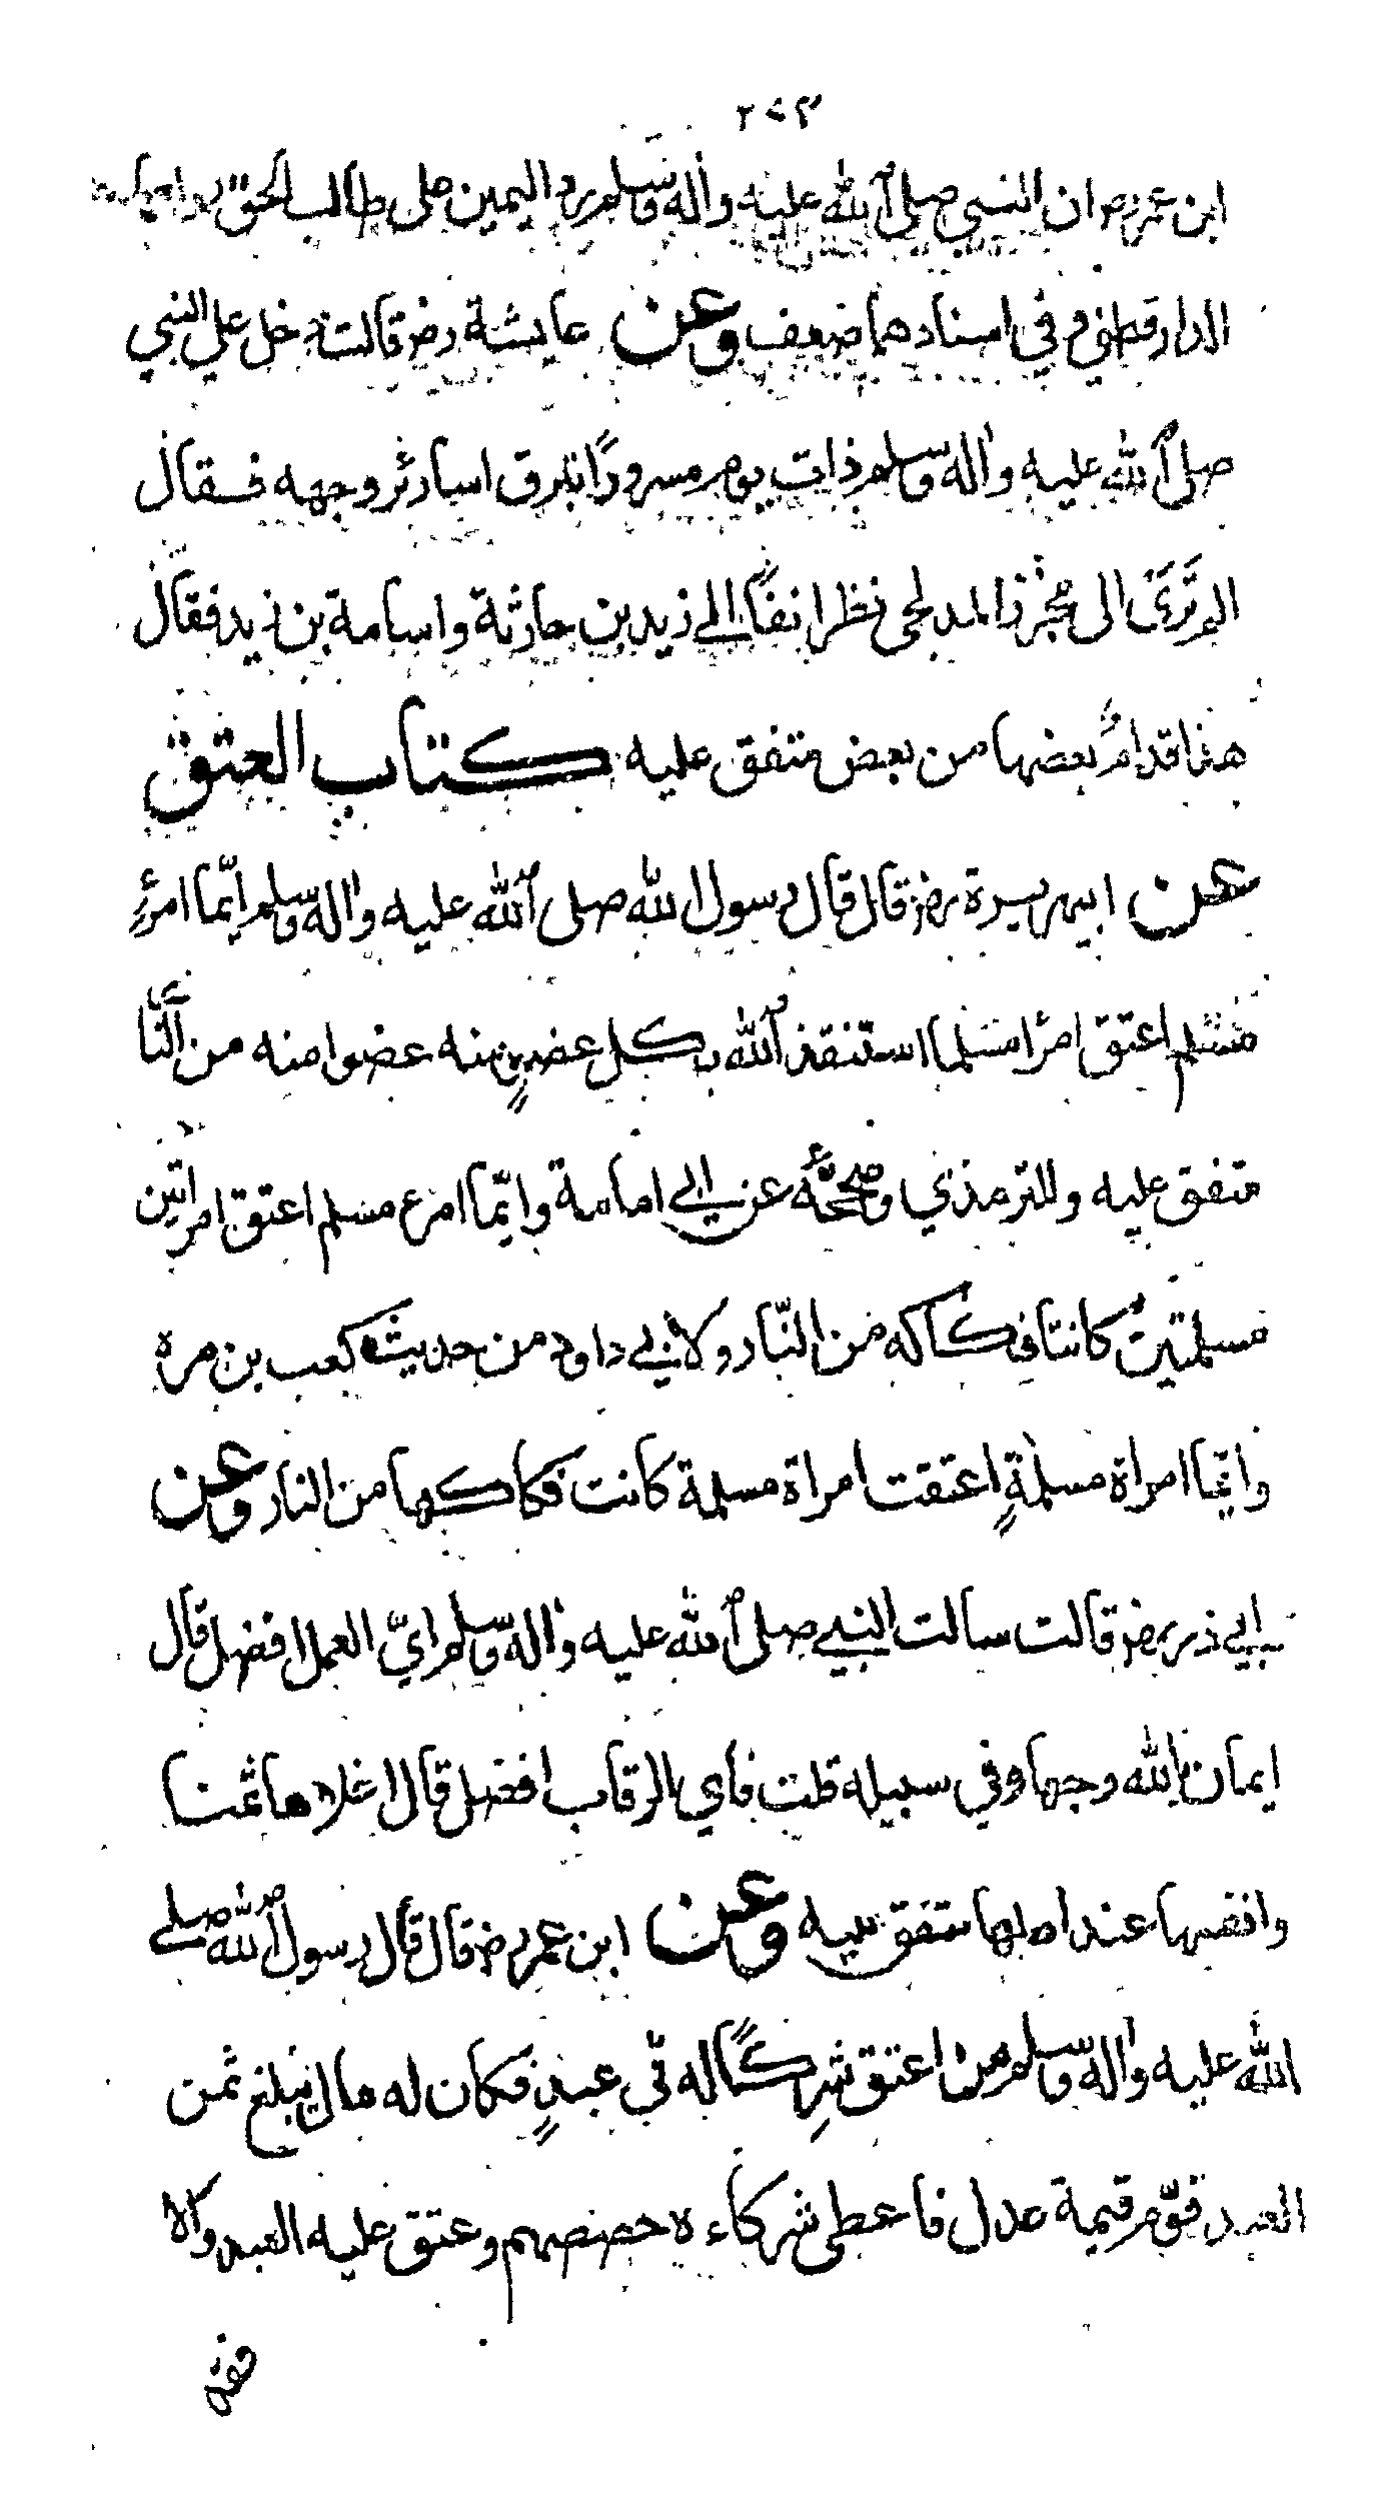 ٢٧٣
ابن عمر رض ان النبي صلى الله عليه واله وسلم رد اليمين على طالب الحق رواهما
الدارقطني وفي اسنادهما ضعيف وعن عايشة رض قالت دخل علي النبي
صلى الله عليه واله وسلم ذات يوم مسرورًا تبرق اسارير وجهه فقال
الم تَرَيْ الى مجزز المدلجي نظر انفًا الى زيد بن حارثة واسامة بن زيد فقال
هذا قدام بعضها من بعض متفق عليه كتاب العتق
عن ابي هريرة رض قال قال رسول الله صلى الله عليه واله وسلم ايّما امرئٍ
مسلم اعتق امرًا مسلما استنقذ الله بكل عضوٍ منه عضوا منه من النّار
متفق عليه وللترمذي وصححه عن ابي امامة وايّما امرء مسلم اعتق امراتين
مسلمتين كانتا فكاكه من النّار ولابي داود من حديث كعب بن مره
وايما امراة مسلمةٍ اعتقت امراة مسلمة كانت فكاكها من النار وعن
ابي ذر رض قالت سالت النبي صلى الله عليه واله وسلم ايّ العمل افضل قال
ايمان بالله وجها وفي سبيله قلت فاي الرقاب افضل قال اغلاها ثمنا
وانفسها عند اهلها متفق عليه وعن ابن عمر رض قال قال رسول الله صلى
الله عليه واله وسلم من اعتق شِركًا له في عبدٍ فكان له مال يبلغ ثمن
العبد قوّم قيمة عدل فاعطى شركاءه حصصهم وعتق عليه العبد والا
فقد